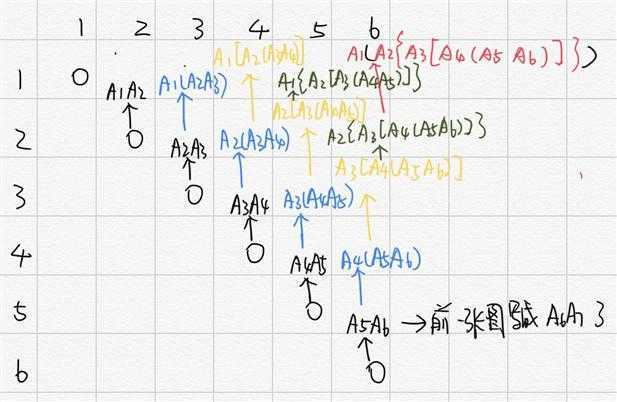 1 2 3 4 5 6
A1[A2(A3A4)] A1(A2{A3[A4(A5 A6)]})
1 0 A1A2 A1(A2A3) A1{A2[A3(A4A5)]}
A2[A3(A4A5)]
2 0 A2A3 A2(A3A4) A2{A3[A4(A5A6)]}
A3[A4(A5A6)]
3 0 A3A4 A3(A4A5)
4 0 A4A5 A4(A5A6)
5 0 A5A6 →前一张图写成A6A7了
6 0